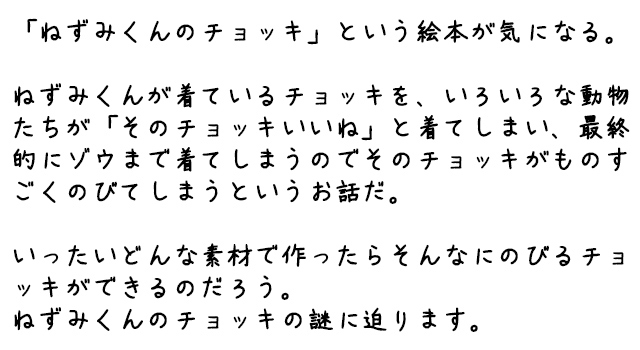 「ねずみくんのチョッキ」という絵本が気になる。
ねずみくんが着ているチョッキを、いろいろな動物
たちが「そのチョッキいいね」と着てしまい、最終
的にゾウまで着てしまうのでそのチョッキがものす
ごくのびてしまうというお話だ。
いったいどんな素材で作ったらそんなにのびるチョ
ッキができるのだろう。
ねずみくんのチョッキの謎に迫ります。